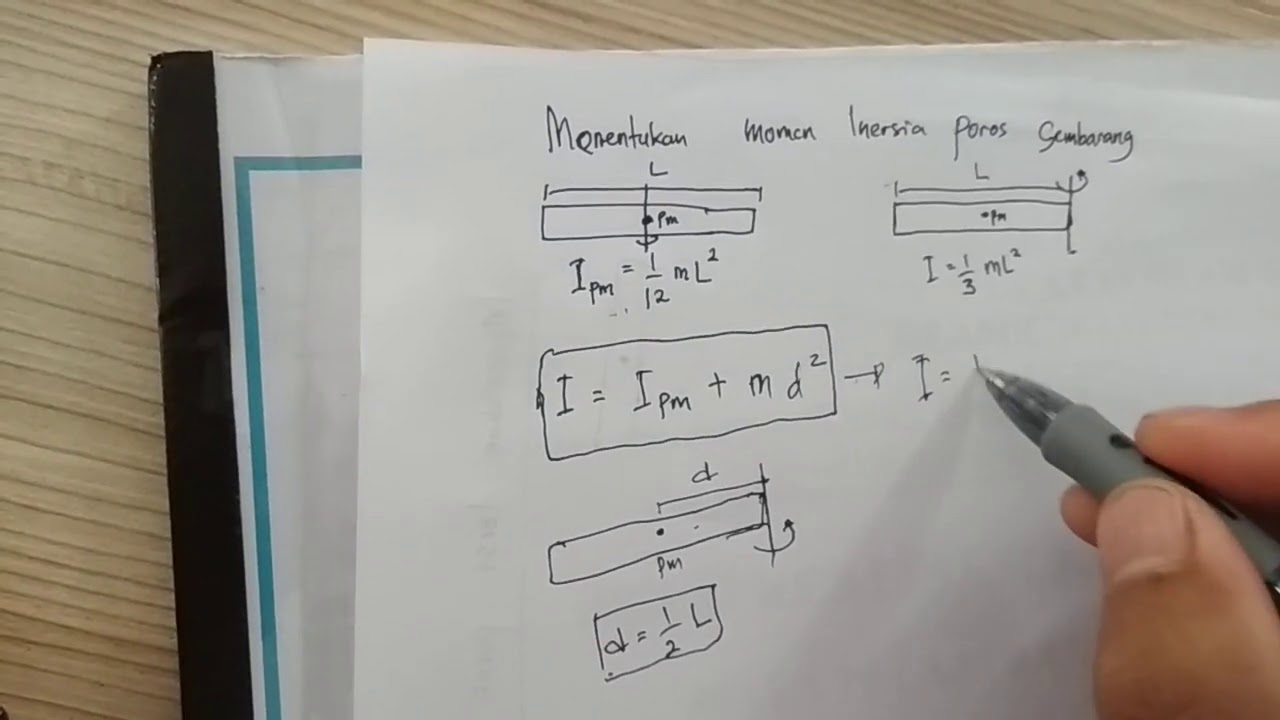 Menentukan Momen Inersia Poros Sembarang
L
L
pm
pm
I_pm = 1/12 mL²
I = 1/3 mL²
I = I_pm + m d² → I =
d
pm
d = 1/2 L